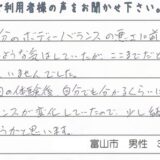 ご利用者様の声をお聞かせ下さい。
分のボディーバランスの悪さに
ような気はしていたが ここまでだと
いませんでした。
の体験後 自分でも分かるくらいに
ンスが変化していたので、少し
うかと思います。
富山市 男性 3